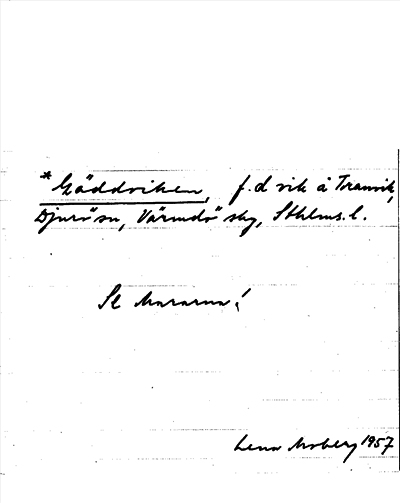 *Gäddviken, f.d vik å Tranvik,
Djurö sn, Värmdö sky, Sthlms. l.
Se Mararna!
Lena Moberg 1957